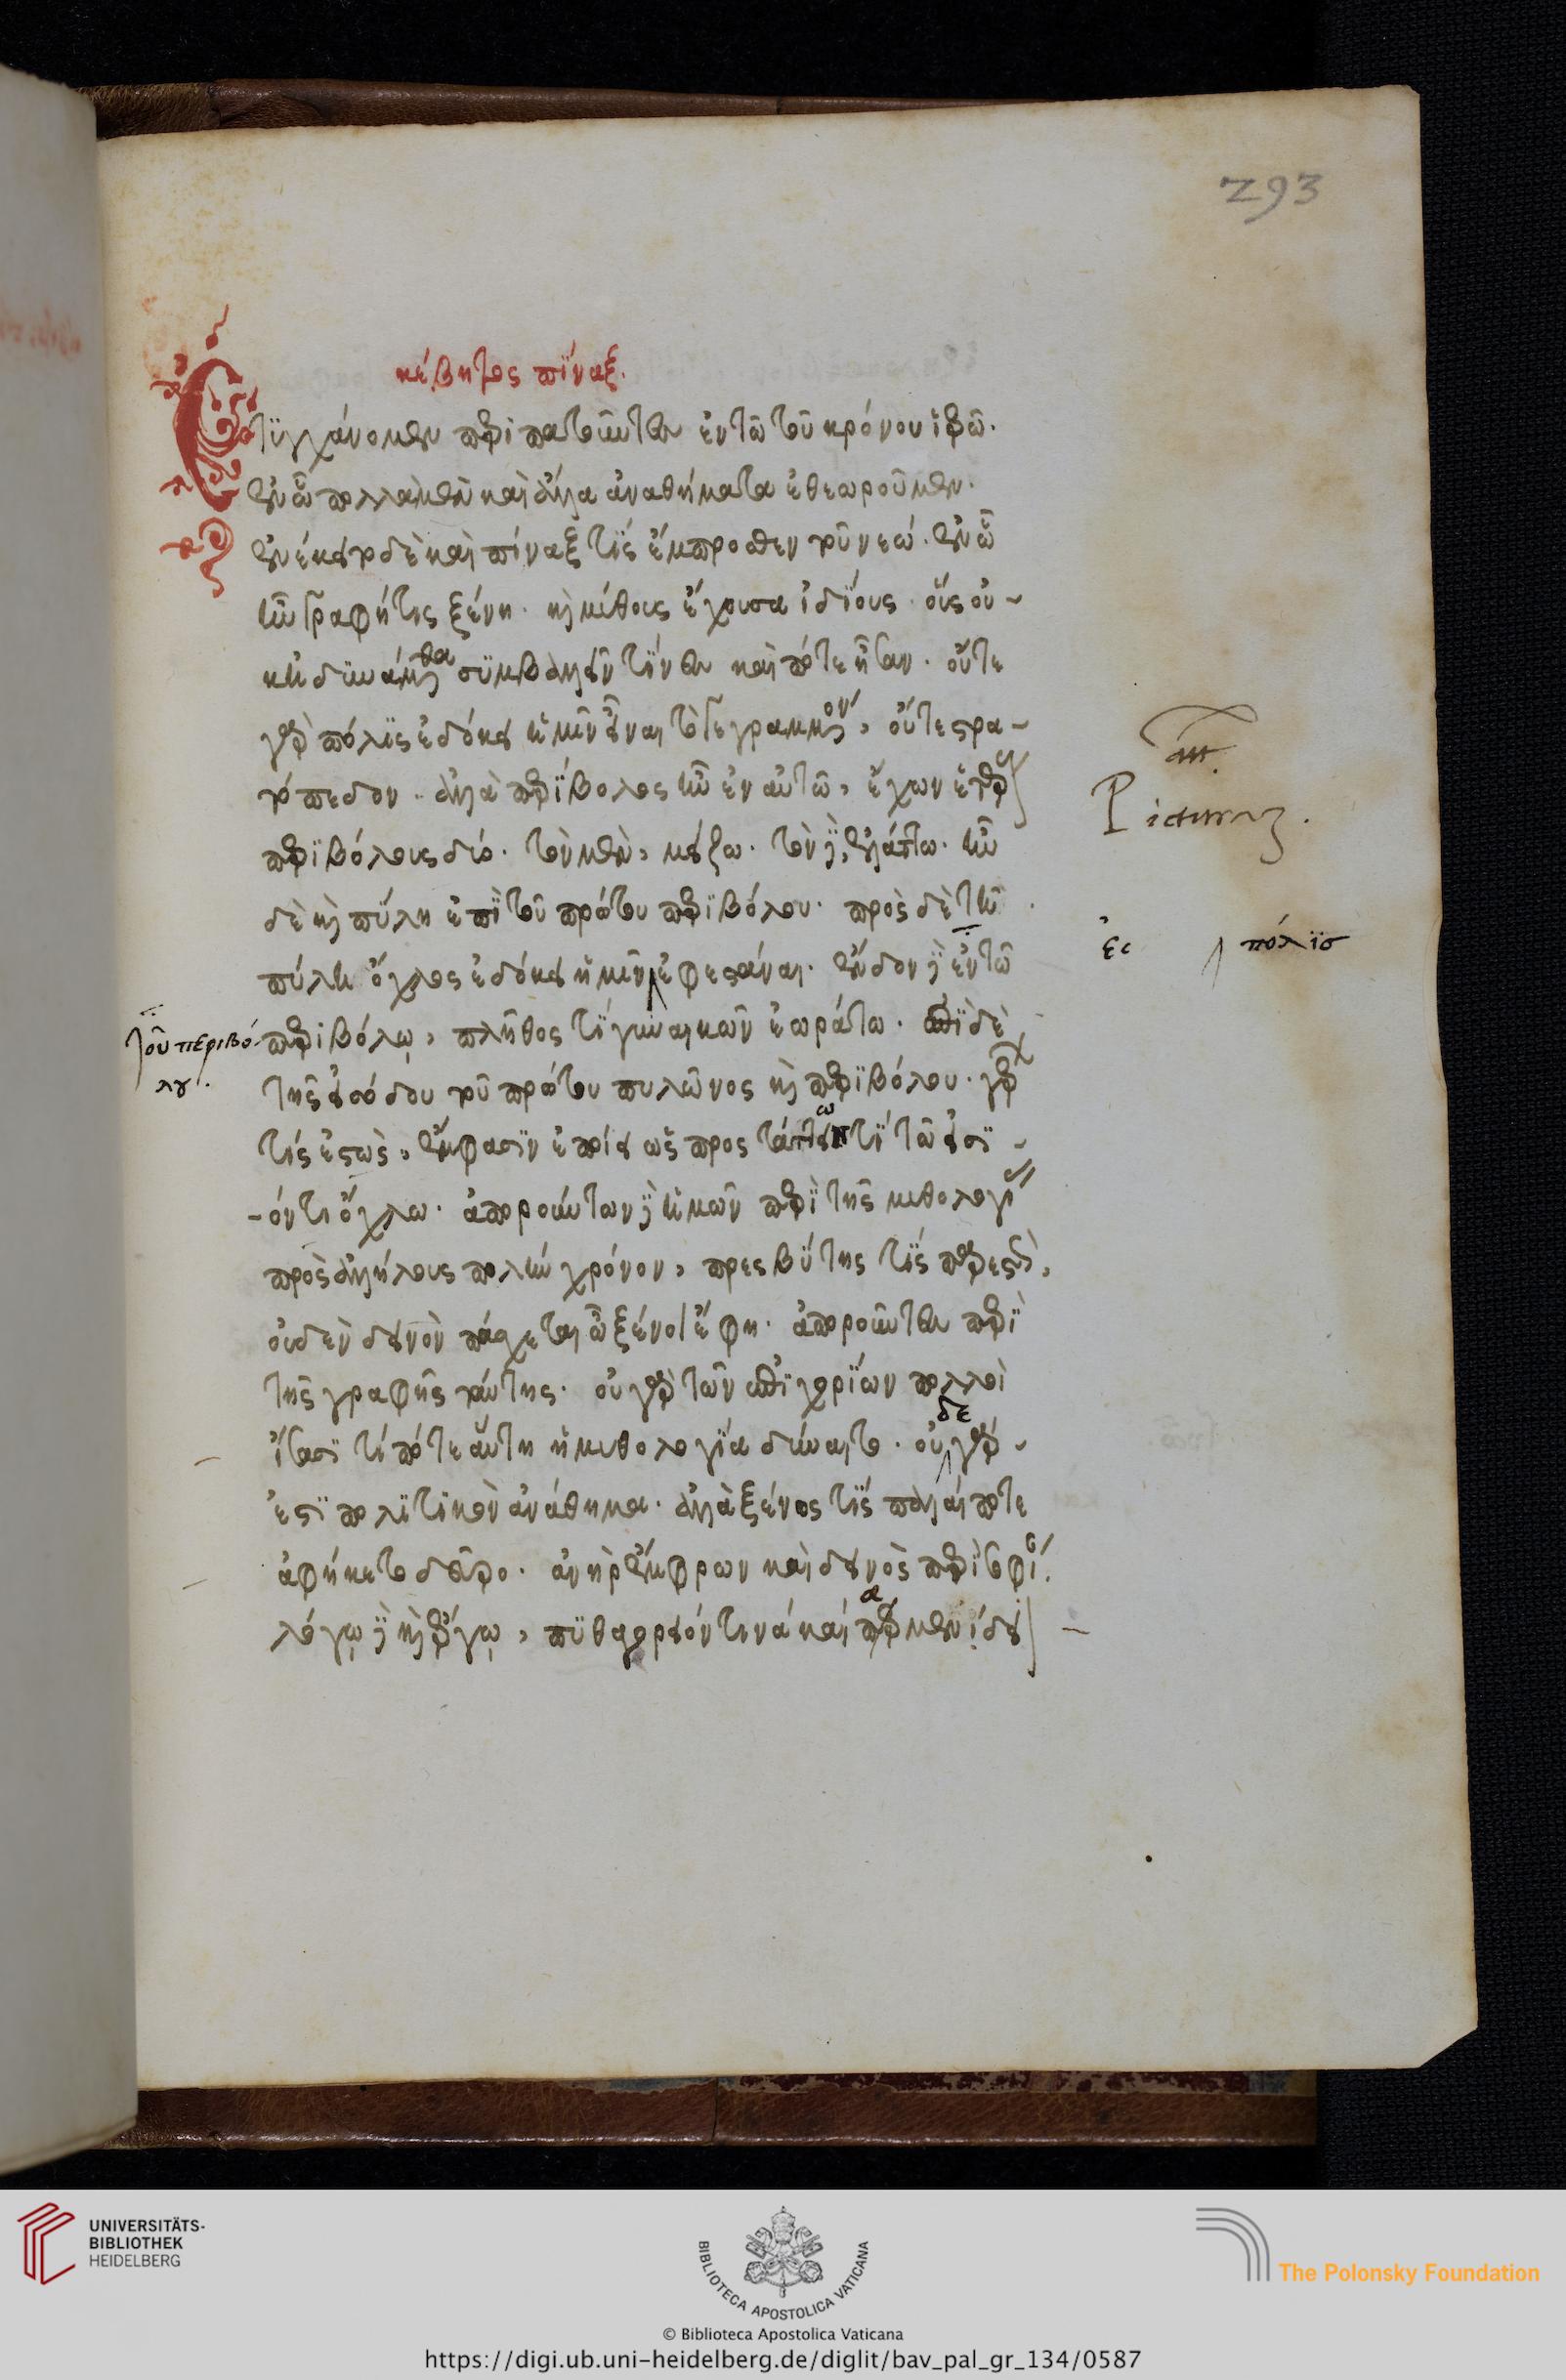 293
κέβητος πίναξ.
Ετϋγχάνομεν περιπατοῦντες ἐν τῶ τοῦ κρόνου ἱερῶ.
ἐν ὧ πολλὰ μὲν καὶ ἄλλα ἀναθήματα ἐθεωροῦμεν.
ἐνέκειτο δὲ καὶ πίναξ τὶς ἔμπροσθεν τοῦ νεώ. ἐν ὧ
ἦν γραφή τις ξένη. καὶ μύθους ἔχουσα ἰδίους. οὓς οὐ-
κ ἠδυνάμεθα συμβαλεῖν τίνες καὶ πότε ἦσαν. οὔτε
γὰρ πόλϊς ἐδόκει ἡμῖν εἶναι τὸ γεγραμμένον, οὔτε στρα-
τόπεδον. ἀλλὰ περίβολος ἦν ἐν αὐτῶ, ἔχων ἑτέρους
περιβόλους δύο. τὸν μὲν, μείζω. τὸν δὲ, ἐλάττω. ἦν
δὲ καὶ πύλη ἐπὶ τοῦ πρώτου περιβόλου. πρὸς δὲ τῆ
πύλη ὄχλος ἐδόκει ἡμῖν ἐφεστάναι. ἔνδον δὲ ἐν τῶ
περιβόλῳ, πλῆθος τι γυναικῶν ἑωράτο. ἐπὶ δὲ
τῆς εἰσόδου τοῦ πρώτου πυλῶνος καὶ περιβόλου. γέρων
τίς ἑστὼς, ἔμφασϊν ἐποίει ὡς προστάττων τι τῶ εἰσϊ-
-όντι ὄχλω. ἀπορούντων δὲ ἡμῶν περὶ τῆς μυθολογίας
πρὸς ἀλλήλους πολὺν χρόνον, πρεσβύτης τὶς παρεστὼς,
οὐδὲν δεινὸν πάσχετε ὦ ξένοι ἔφη. ἀποροῦντες περὶ
τῆς γραφῆς ταύτης. οὐ γὰρ τῶν ἐπιχωρίων πολλοὶ
ἴσασι τί πότε αὕτη ἡ μυθολογία δύναται. οὐδε γάρ
ἐστι πολιτικὸν ἀνάθημα. ἀλλὰ ξένος τὶς πάλαι ποτε
ἀφίκετο δεῦρο. ἀνὴρ ἔμφρων καὶ δεινὸς περὶ σοφίαν.
λόγῳ δὲ καὶ ἔργῳ, πυθαγόρειόν τινά καὶ παρμενίδειον
ἃπ.
Picturaz.
ἐς
πόλϊσ
τοῦ περιβό-
λου.
UNIVERSITÄTS-
BIBLIOTHEK
HEIDELBERG
BIBLIOTECA APOSTOLICA VATICANA
The Polonsky Foundation
© Biblioteca Apostolica Vaticana
https://digi.ub.uni-heidelberg.de/diglit/bav_pal_gr_134/0587